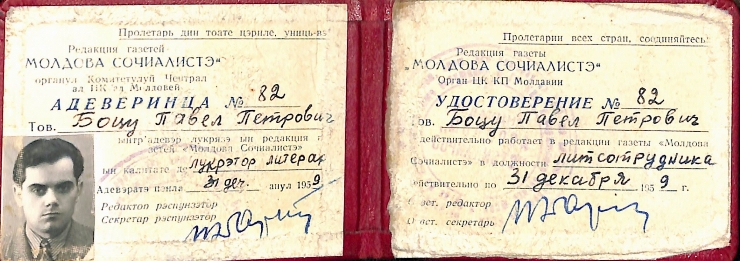 Пролетарь дин тоате цэриле, униць-вэ
Редакция газетей
„МОЛДОВА СОЧИАЛИСТЭ“
органул Комитетулуй Чентрал
ал ПК Молдовей
АДЕВЕРИНЦА № 82
Тов. Боцу Павел Петрович
лукр ын редакция г
зетей «Молдова Сочиалистэ»
ын калитате де лукрэтор литерар
Адеверата пынэ ла 31 деч. анул 1959
Редактор рэспунзэтор
Секретар рэспунзэтор
Пролетарии всех стран, соединяйтесь!
Редакция газеты
„МОЛДОВА СОЧИАЛИСТЭ“
Орган ЦК КП Молдавии
УДОСТОВЕРЕНИЕ № 82
ов. Боцу Павел Петрович
действительно работает в редакции газеты «Молдова
Сочиалистэ» в должности литсотрудника
ействительно по 31 декабря 1959 г.
вет. редактор
О вет. секретарь